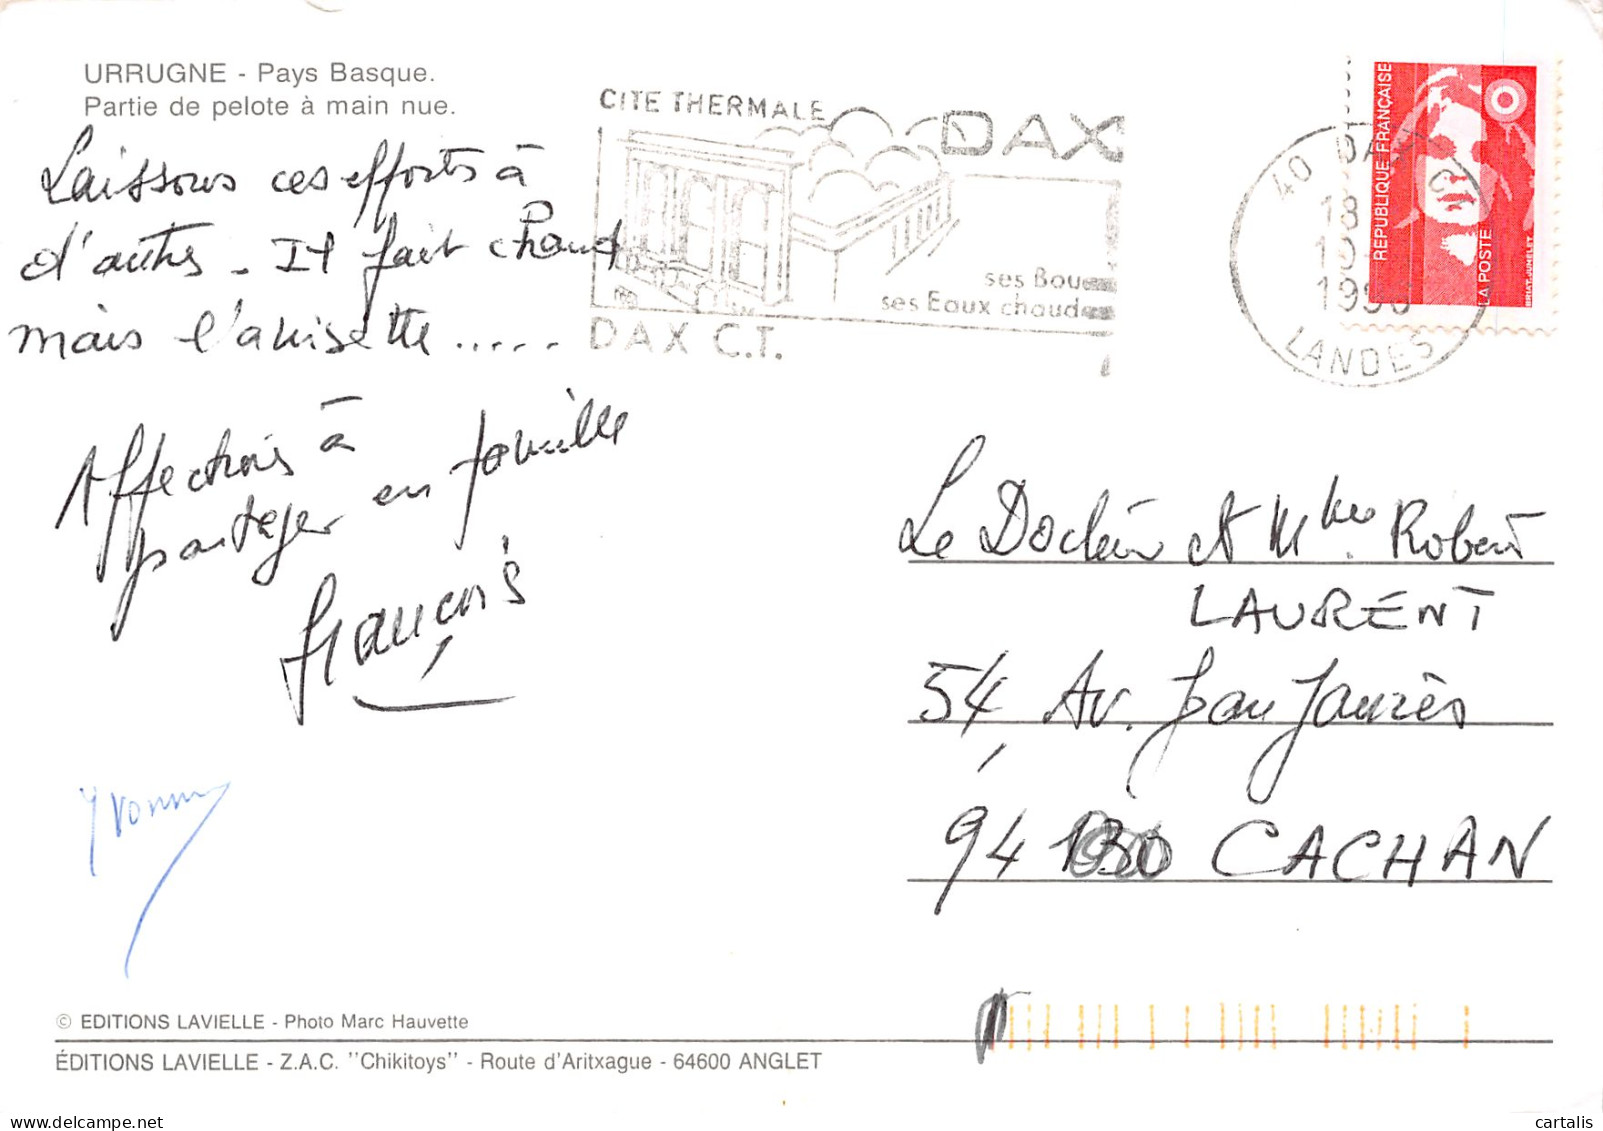 URRUGNE - Pays Basque.
Partie de pelote à main nue.
Laissons ces efforts à
d'autres - Il fait chaud
mais l'anisette .....
Affections à
partager en famille
François
Yvonne
CITE THERMALE
DAX
ses Boues
ses Eaux chaudes
DAX C.T.
40 DAX
18
1990
LANDES
REPUBLIQUE FRANÇAISE
LA POSTE
BRIAT-JUMELET
Le Docteur et Mme Robert
LAURENT
54, Av. Jean Jaurès
94 CACHAN
© EDITIONS LAVIELLE - Photo Marc Hauvette
ÉDITIONS LAVIELLE - Z.A.C. "Chikitoys" - Route d'Aritxague - 64600 ANGLET
cartalis